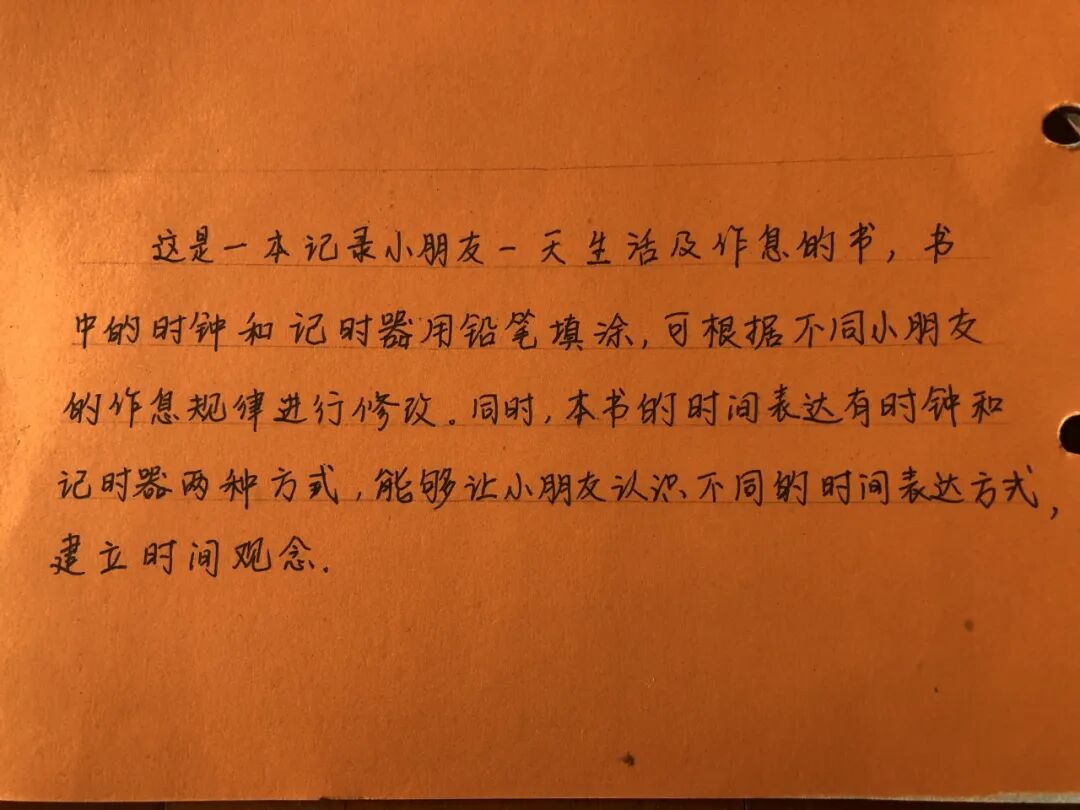 这是一本记录小朋友一天生活及作息的书,书
中的时钟和记时器用铅笔填涂,可根据不同小朋友
的作息规律进行修改。同时,本书的时间表达有时钟和
记时器两种方式,能够让小朋友认识不同的时间表达方式,
建立时间观念.